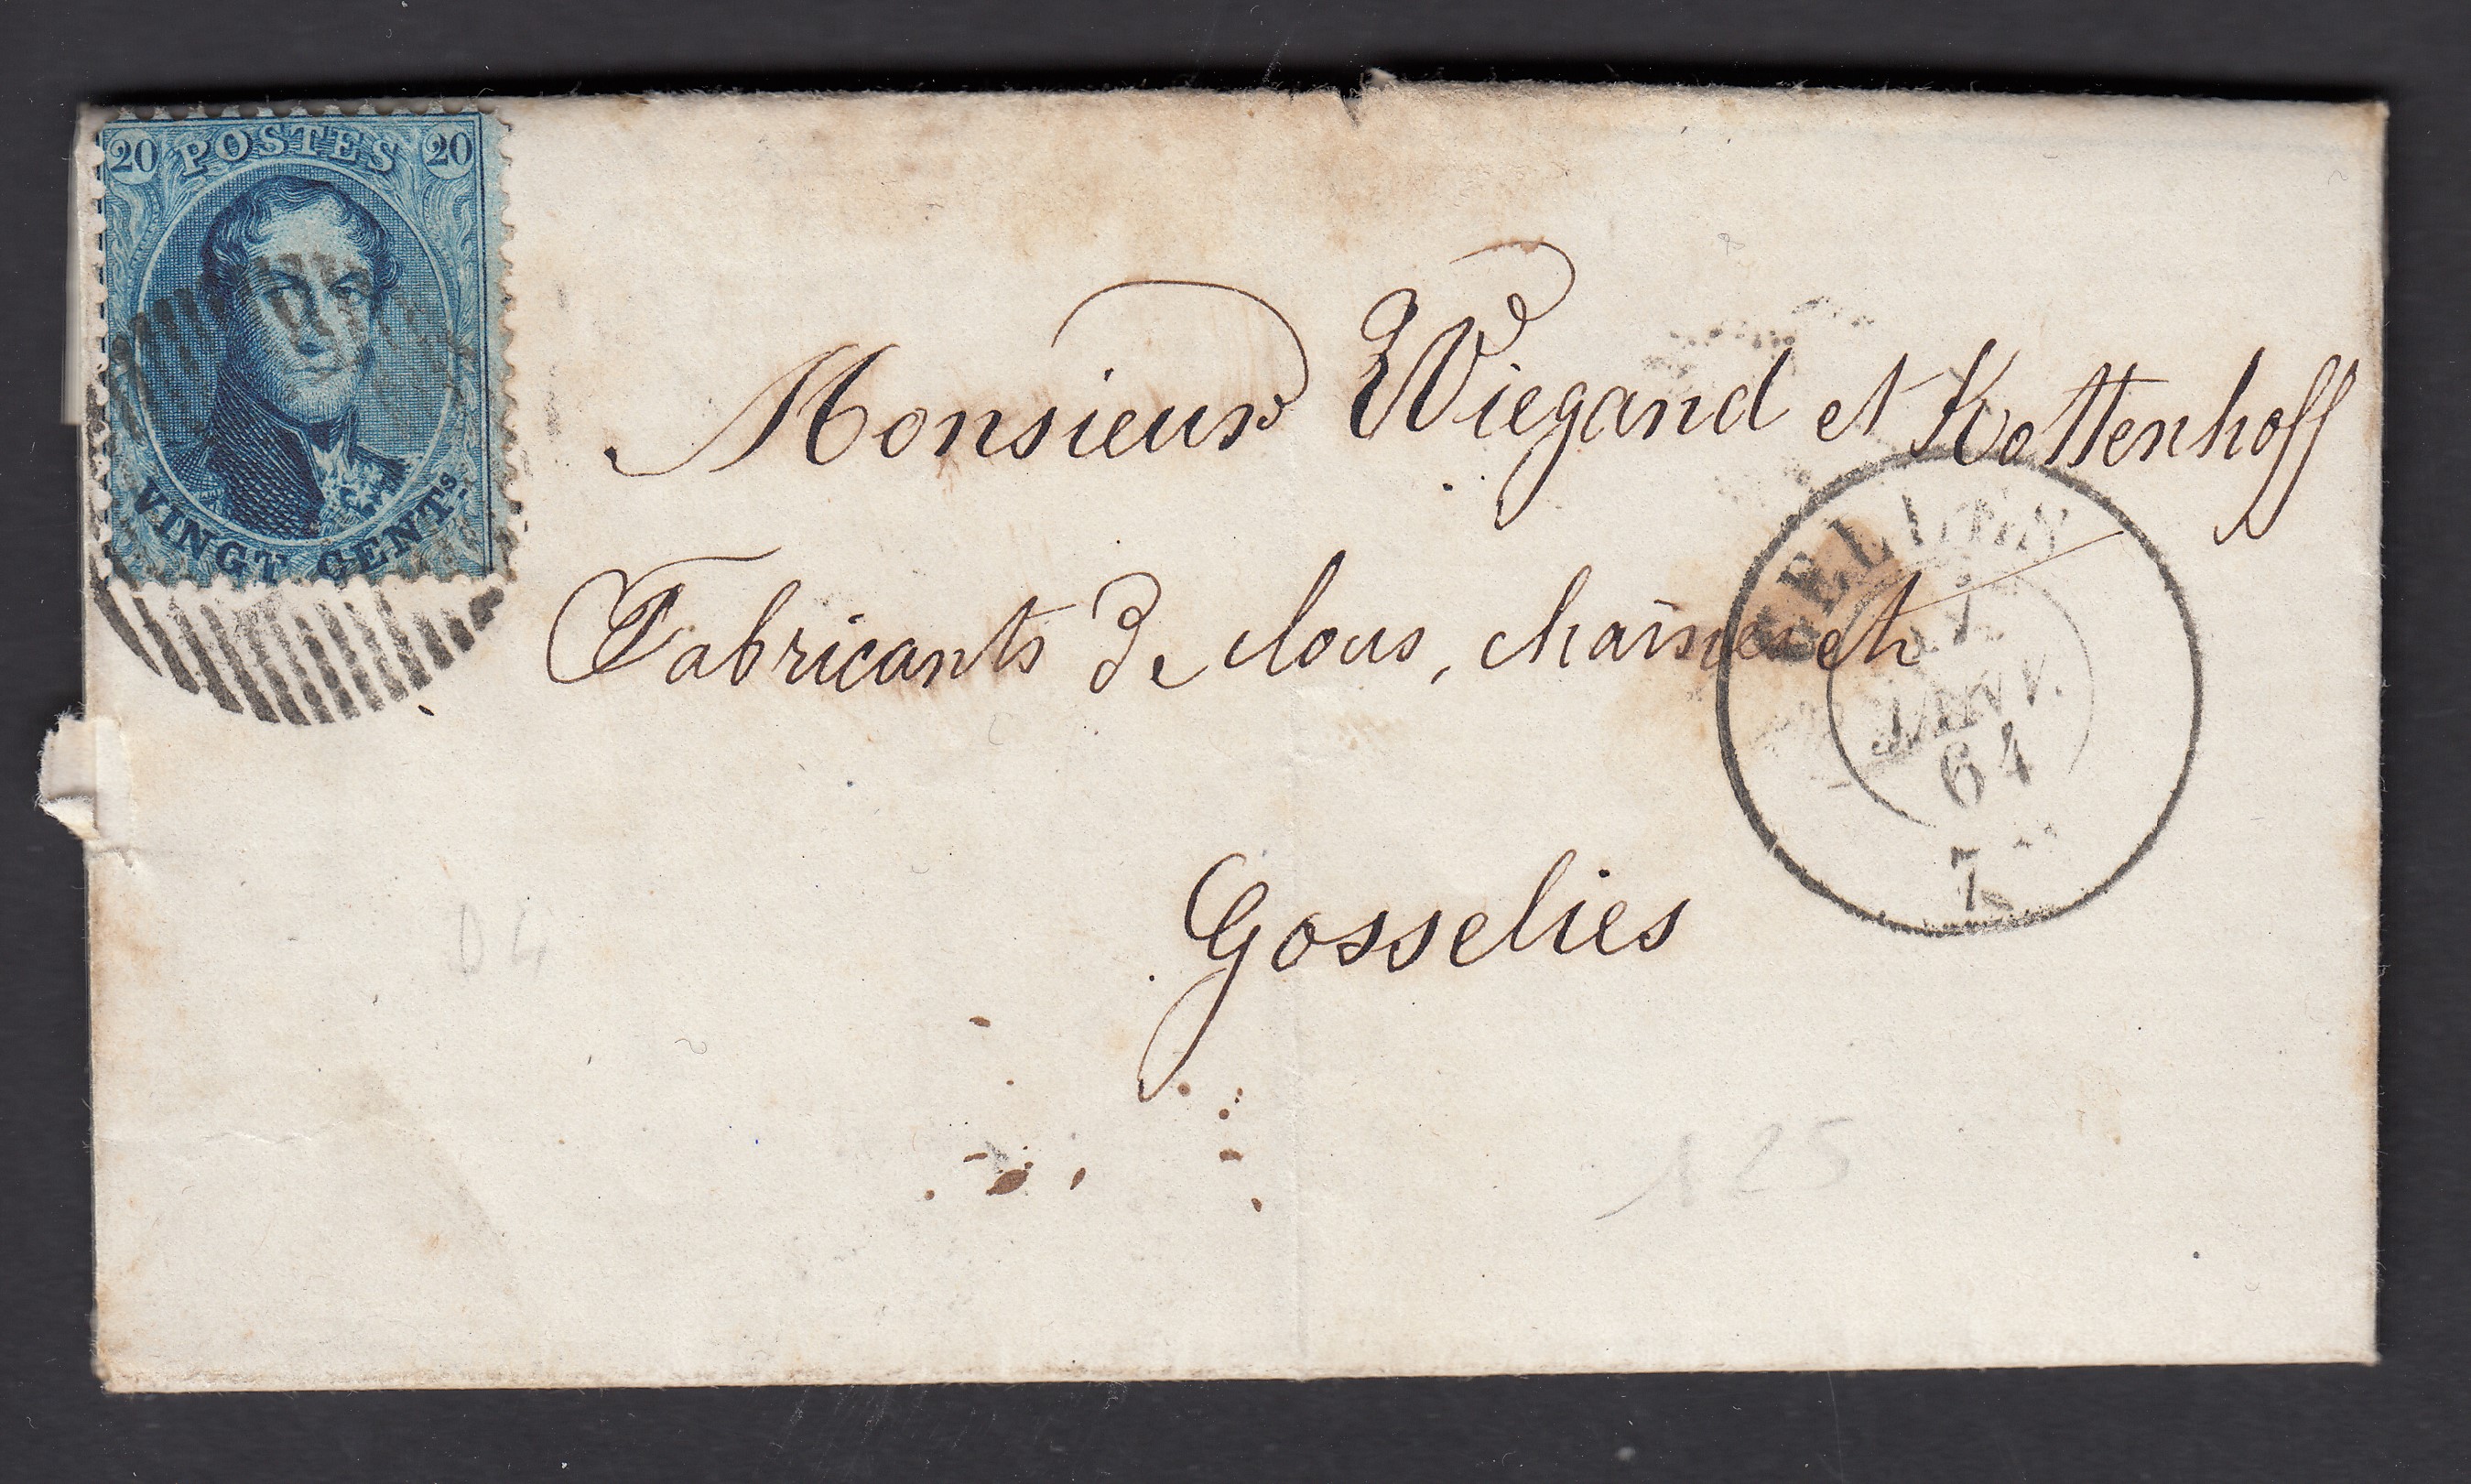 20 POSTES 20
VINGT CENTS.
Monsieur Wiegand et Kottenhoff
Fabricants de clous, chaînes et
Gosselies
JANV.
64
7
D4
125